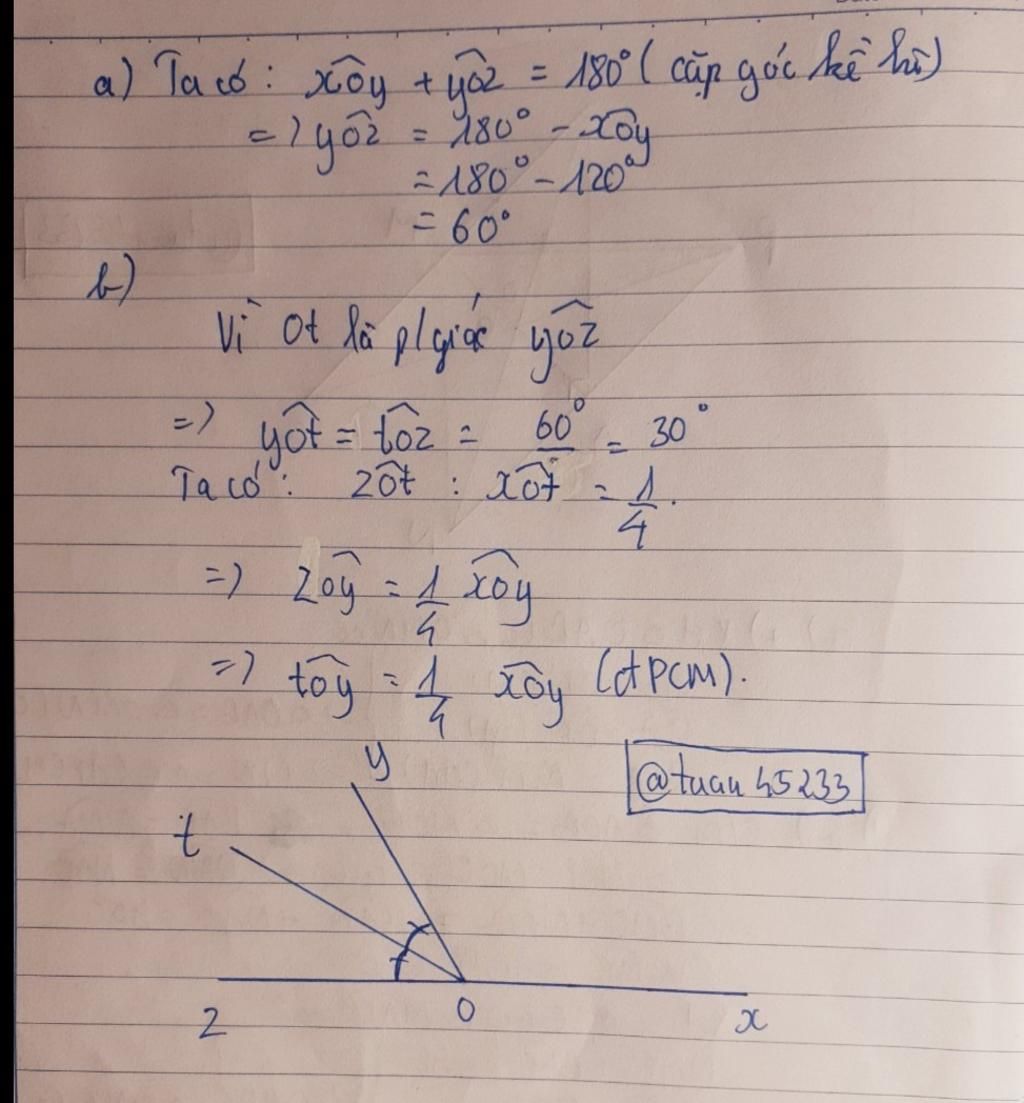 a) Ta có : xÔy + yÔz = 180° ( cặp góc kề bù)
=> yÔz = 180° - xÔy
= 180° - 120°
= 60°
b)
Vì Ot là p/giác yÔz
=> yÔt = tÔz = 60°/2 = 30°
Ta có : zÔt : xÔt = 1/4.
=> zÔy = 1/4 xÔy
=> tÔy = 1/4 xÔy (đPCM).
@tuan45233
y
t
z O x